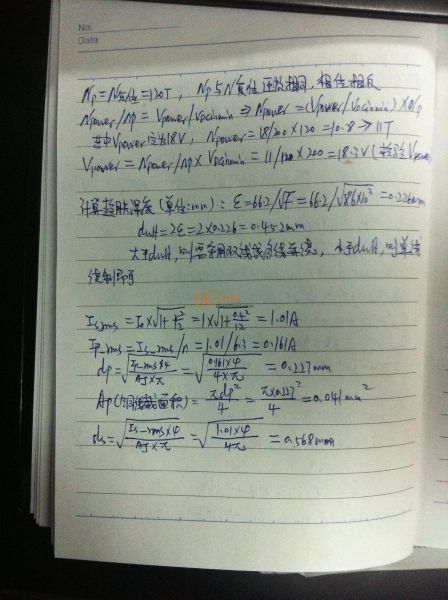 No.
Date
Np=N复位=120T, Np与N复位匝数相同, 相位相反
Npower/np = Vpower/Vpcinmin ⇒ Npower=(Vpower/Vpcinmin)×Np
其中Vpower定为18V, Npower=18/200×120=10.8→11T
Vpower=Npower/np×Vpcinmin=11/120×200=18.3V(检验Vpower
计算趋肤深度(单位:mm): ε=66.2/√f=66.2/√(86×10³)=0.226mm
dwH=2ε=2×0.226=0.452mm
大于dwH, 则需采用双线或多线并绕, 小于dwH, 则单线
绕制即可
Is_rms=Io×√(1+k²/12)=1×√(1+0.4²/12)=1.01A
Ip_rms=Is_rms/n=1.01/6.3=0.161A
dp=√(Ip_rms×4/AJ×π)=√(0.161×4/4×π)=0.227mm
Ap(铜线截面积)=πdp²/4=π×0.227²/4=0.041mm²
ds=√(Is_rms×4/AJ×π)=√(1.01×4/4π)=0.568mm